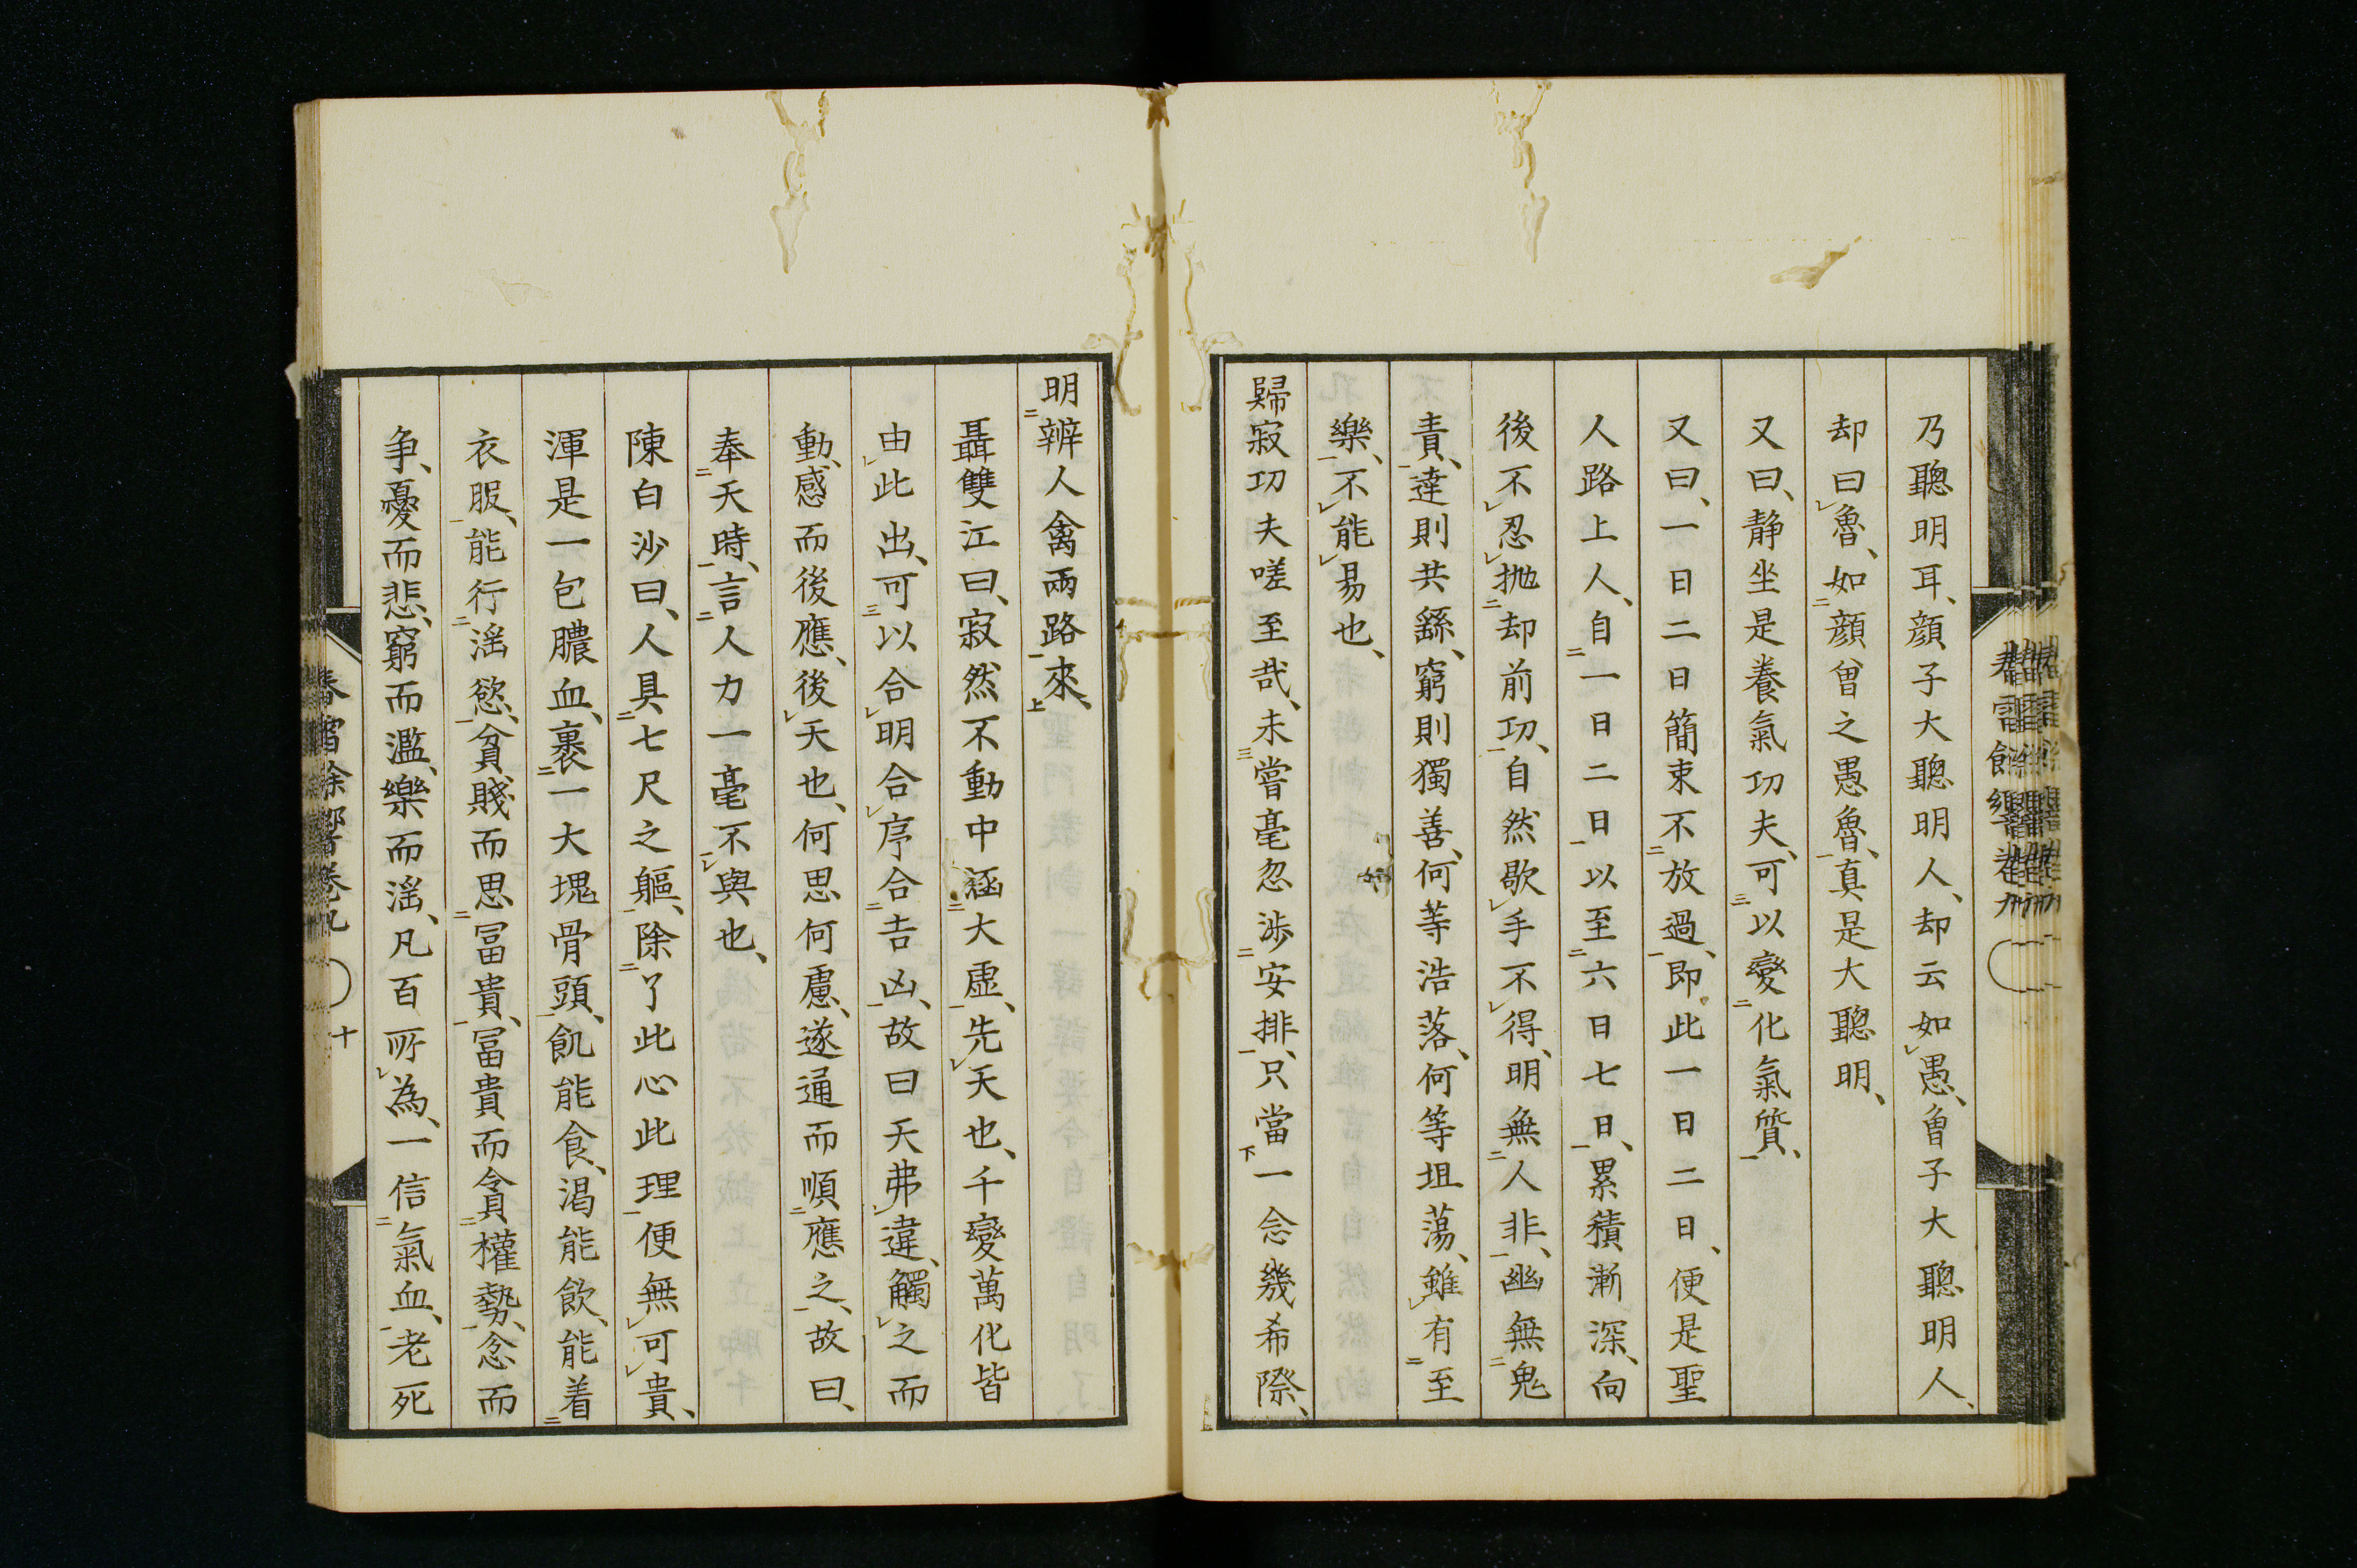 乃聰明耳、顔子大聰明人、却云如愚、曽子大聰明人、
却曰魯、如顔曽之愚魯、真是大聰明、
又曰、静坐是養氣功夫、可以變化氣質、
又曰、一日二日簡束不放過、即此一日二日、便是聖
人路上人、自一日二日以至六日七日、累積漸深、向
後不忍抛却前功、自然歇手不得、明無人非、幽無鬼
責、達則共繇、窮則獨善、何等浩落、何等坦蕩、雖有至
樂、不能易也、
歸寂功夫嗟至哉、未嘗毫忽渉安排、只當一念幾希際、
明辨人禽兩路來、
聶雙江曰、寂然不動中涵大虛、先天也、千變萬化皆
由此出、可以合明合序合吉凶、故曰天弗違、觸之而
動、感而後應、後天也、何思何慮、遂通而順應之、故曰、
奉天時、言人力一毫不與也、
陳白沙曰、人具七尺之軀、除了此心此理便無可貴、
渾是一包膿血、裹一大塊骨頭、飢能食、渇能飲、能着
衣服、能行滛慾、貧賤而思冨貴、冨貴而貪權勢、忿而
争、憂而悲、窮而濫、樂而滛、凡百所為、一信氣血、老死
十